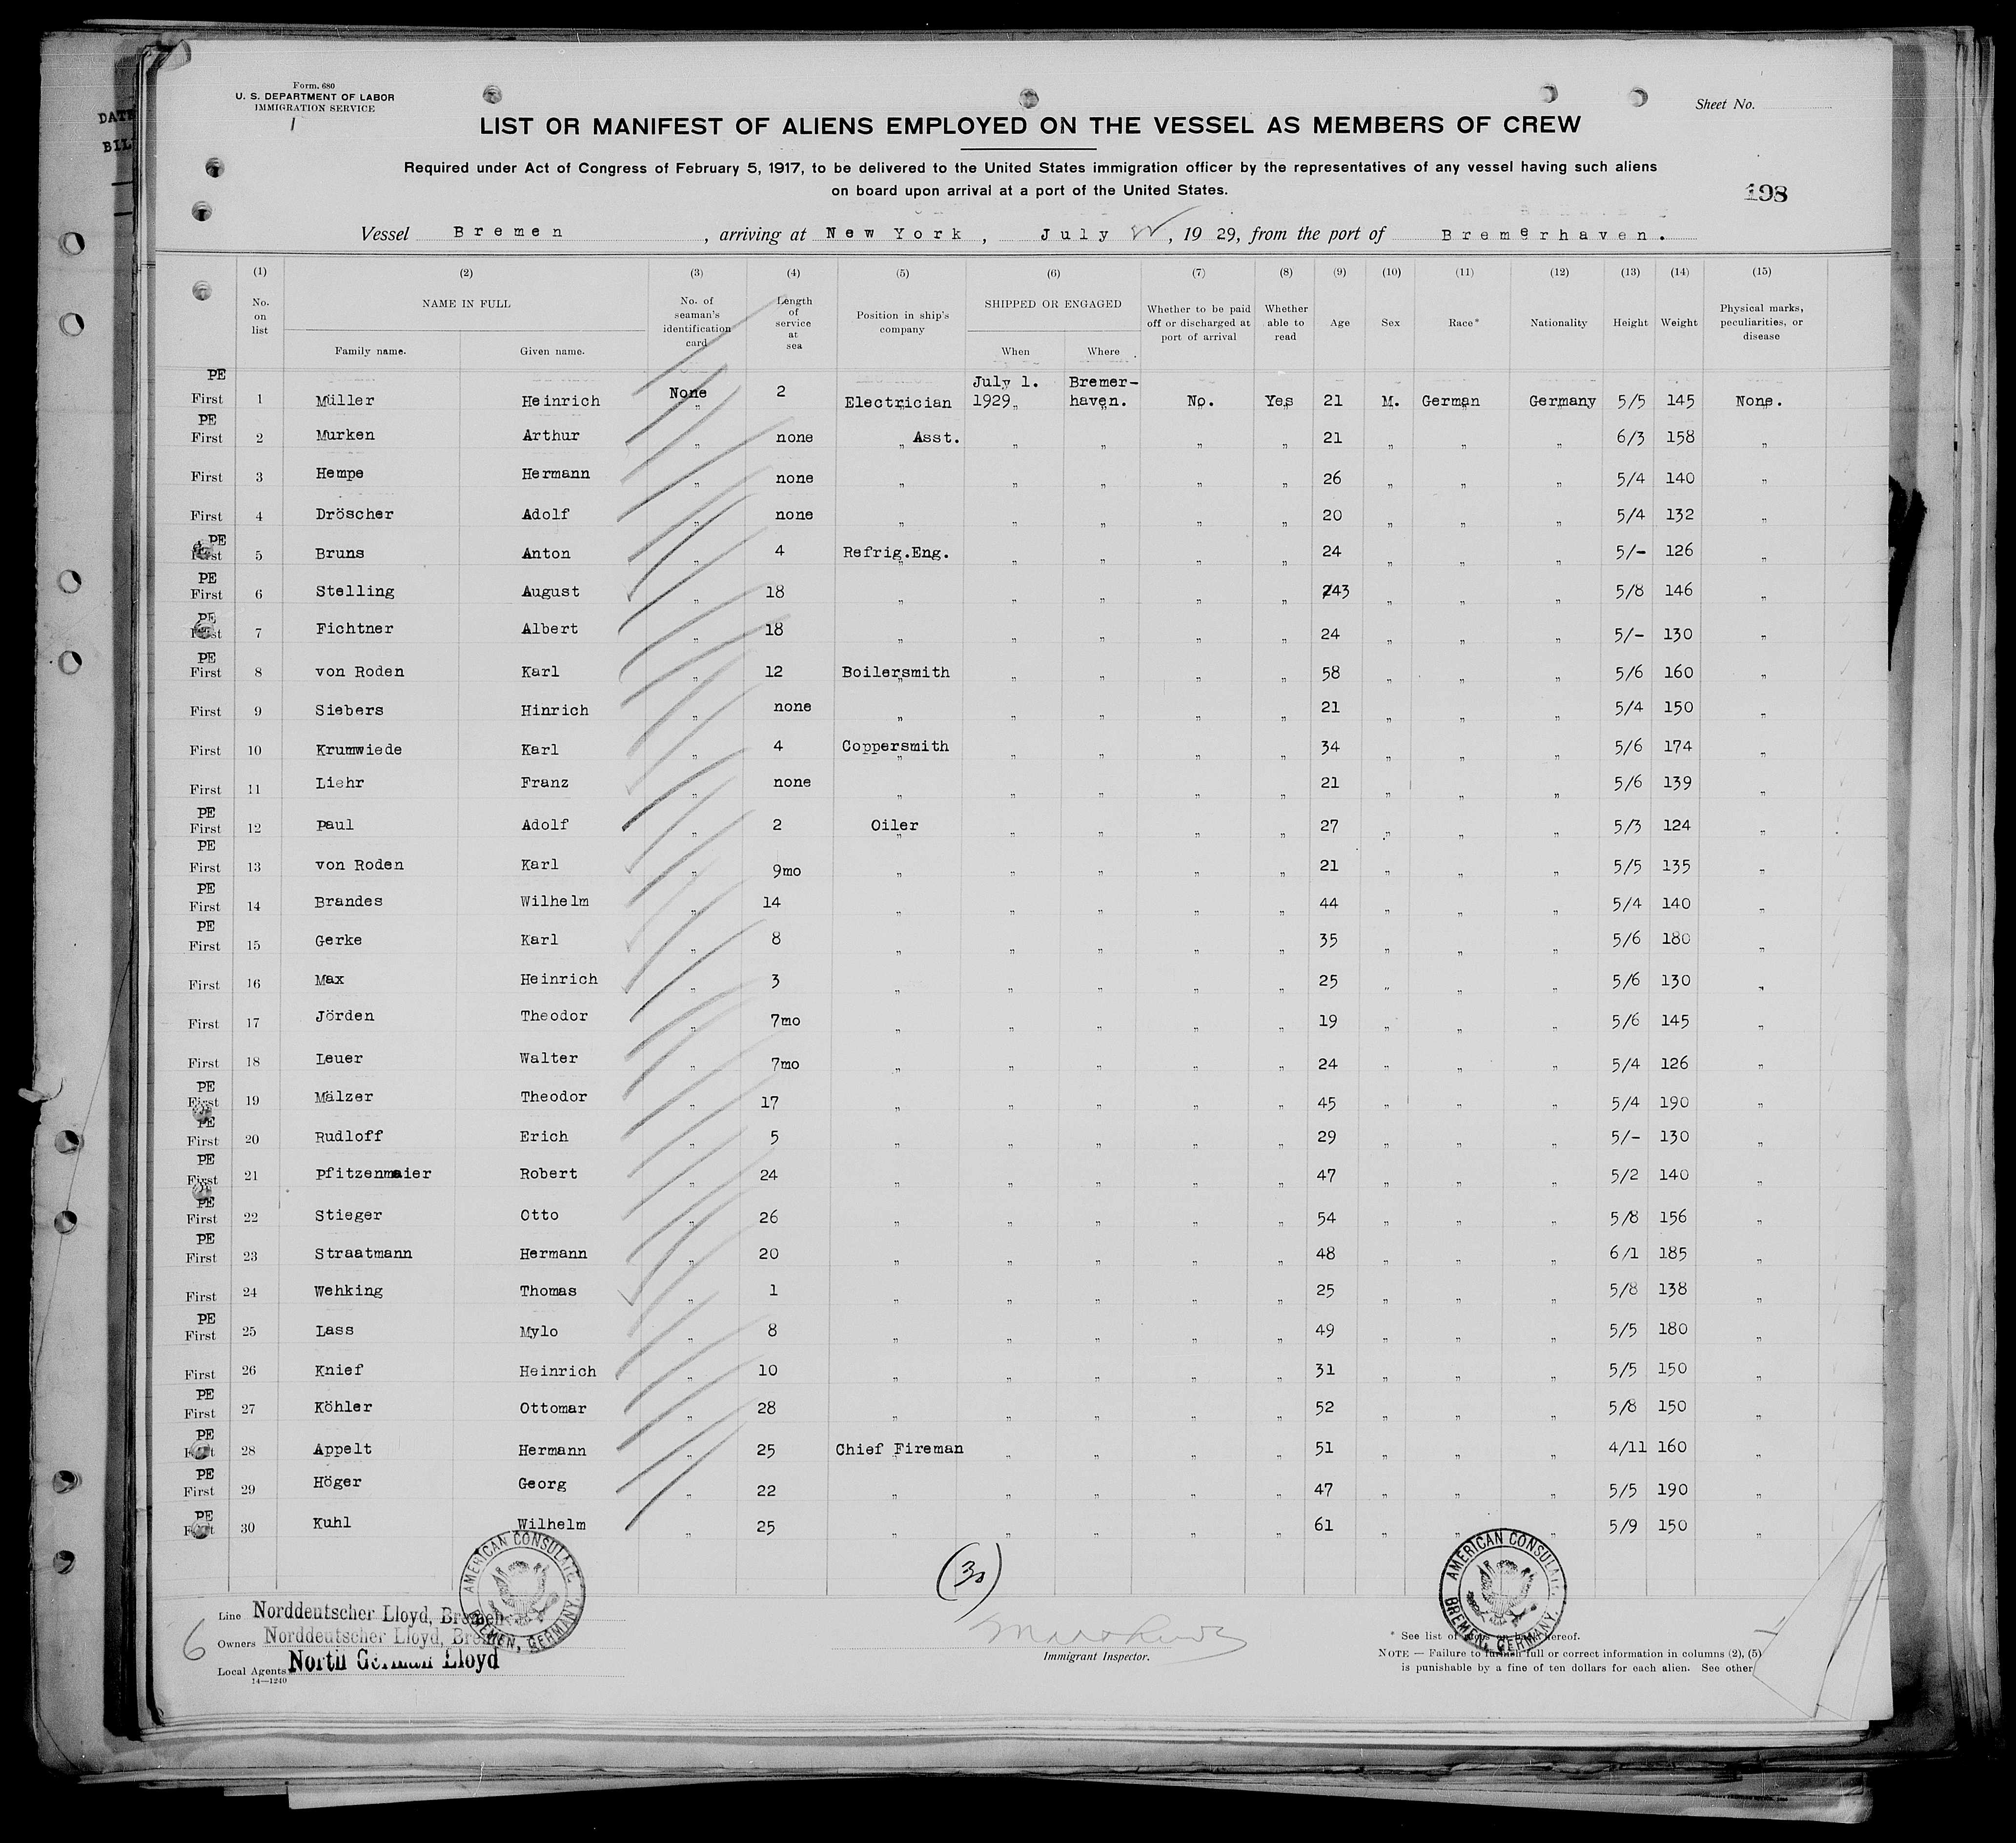 DATE
BIL
Form. 680
U. S. DEPARTMENT OF LABOR
IMMIGRATION SERVICE
1
Sheet No.
LIST OR MANIFEST OF ALIENS EMPLOYED ON THE VESSEL AS MEMBERS OF CREW
Required under Act of Congress of February 5, 1917, to be delivered to the United States immigration officer by the representatives of any vessel having such aliens
on board upon arrival at a port of the United States.
198
Vessel Bremen, arriving at New York, July, 1929, from the port of Bremerhaven.
(1) (2) (3) (4) (5) (6) (7) (8) (9) (10) (11) (12) (13) (14) (15)
No. on list NAME IN FULL Family name. Given name. No. of seaman's identification card Length of service at sea Position in ship's company SHIPPED OR ENGAGED When Where Whether to be paid off or discharged at port of arrival Whether able to read Age Sex Race* Nationality Height Weight Physical marks, peculiarities, or disease
PE First 1 Müller Heinrich None „ 2 Electrician July 1. 1929„ Bremer-haven. No. Yes 21 M. German Germany 5/5 145 None.
PE First 2 Murken Arthur „ none „ Asst. „ „ „ „ 21 „ „ „ 6/3 158 „
First 3 Hempe Hermann „ none „ „ „ „ „ 26 „ „ „ 5/4 140 „
First 4 Dröscher Adolf „ none „ „ „ „ „ 20 „ „ „ 5/4 132 „
PE First 5 Bruns Anton „ 4 Refrig.Eng. „ „ „ „ 24 „ „ „ 5/- 126 „
PE First 6 Stelling August „ 18 „ „ „ „ „ 243 „ „ „ 5/8 146 „
PE First 7 Fichtner Albert „ 18 „ „ „ „ „ 24 „ „ „ 5/- 130 „
PE First 8 von Roden Karl „ 12 Boilersmith „ „ „ „ 58 „ „ „ 5/6 160 „
First 9 Siebers Hinrich „ none „ „ „ „ „ 21 „ „ „ 5/4 150 „
First 10 Krumwiede Karl „ 4 Coppersmith „ „ „ „ 34 „ „ „ 5/6 174 „
First 11 Liehr Franz „ none „ „ „ „ „ 21 „ „ „ 5/6 139 „
PE First 12 Paul Adolf „ 2 Oiler „ „ „ „ 27 „ „ „ 5/3 124 „
PE First 13 von Roden Karl „ 9mo „ „ „ „ „ 21 „ „ „ 5/5 135 „
PE First 14 Brandes Wilhelm „ 14 „ „ „ „ „ 44 „ „ „ 5/4 140 „
PE First 15 Gerke Karl „ 8 „ „ „ „ „ 35 „ „ „ 5/6 180 „
First 16 Max Heinrich „ 3 „ „ „ „ „ 25 „ „ „ 5/6 130 „
First 17 Jörden Theodor „ 7mo „ „ „ „ „ 19 „ „ „ 5/6 145 „
First 18 Leuer Walter „ 7mo „ „ „ „ „ 24 „ „ „ 5/4 126 „
PE First 19 Mälzer Theodor „ 17 „ „ „ „ „ 45 „ „ „ 5/4 190 „
PE First 20 Rudloff Erich „ 5 „ „ „ „ „ 29 „ „ „ 5/- 130 „
PE First 21 Pfitzenmaier Robert „ 24 „ „ „ „ „ 47 „ „ „ 5/2 140 „
PE First 22 Stieger Otto „ 26 „ „ „ „ „ 54 „ „ „ 5/8 156 „
PE First 23 Straatmann Hermann „ 20 „ „ „ „ „ 48 „ „ „ 6/1 185 „
First 24 Wehking Thomas „ 1 „ „ „ „ „ 25 „ „ „ 5/8 138 „
PE First 25 Lass Mylo „ 8 „ „ „ „ „ 49 „ „ „ 5/5 180 „
First 26 Knief Heinrich „ 10 „ „ „ „ „ 31 „ „ „ 5/5 150 „
PE First 27 Köhler Ottomar „ 28 „ „ „ „ „ 52 „ „ „ 5/8 150 „
PE First 28 Appelt Hermann „ 25 Chief Fireman „ „ „ „ 51 „ „ „ 4/11 160 „
PE First 29 Höger Georg „ 22 „ „ „ „ „ 47 „ „ „ 5/5 190 „
PE First 30 Kuhl Wilhelm „ 25 „ „ „ „ „ 61 „ „ „ 5/9 150 „
(30)
AMERICAN CONSULATE BREMEN, GERMANY.
AMERICAN CONSULATE BREMEN, GERMANY.
6
Line Norddeutscher Lloyd, Bremen
Owners Norddeutscher Lloyd, Bremen
Local Agents North German Lloyd
14—1240
Immigrant Inspector.
* See list of races on back hereof.
NOTE — Failure to furnish full or correct information in columns (2), (5)
is punishable by a fine of ten dollars for each alien. See other